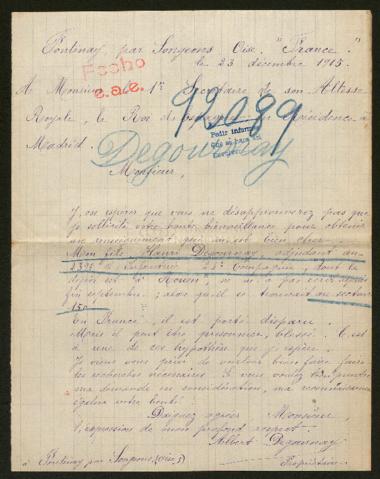 Fontenay, par Songeons Oise. "France."
le 23 décembre 1915.
Fecho
e.a.e.
A Monsieur 1er Secrétaire de son Altesse
Royale, le Roi de en Résidence à
Madrid.
92089
Petit
Degournay
Monsieur,
J'ose espérer que vous ne désapprouverez pas que
je sollicite votre haute bienveillance pour obtenir
un renseignement qui m'est bien cher.
Mon fils Henri Degournay, adjudant au
239e d'infanterie Compagnie, dont le
dépôt est à Rouen, ne m'a pas écrit depuis
fin septembre; alors qu'il se trouvait au secteur
150.
En France, il est porté disparu.
Mais il peut être prisonnier, blessé. C'est
à une de ces hypothèses que j'espère.
Je viens vous prier de vouloir bien faire faire
les recherches nécessaires. Si vous voulez bien prendre
ma demande en considération, ma reconnaissance
égalera votre bonté.
Daignez agréer Monsieur
l'expression de mon profond respect.
Albert Degournay
Propriétaire
à Fontenay par Songeons (Oise)